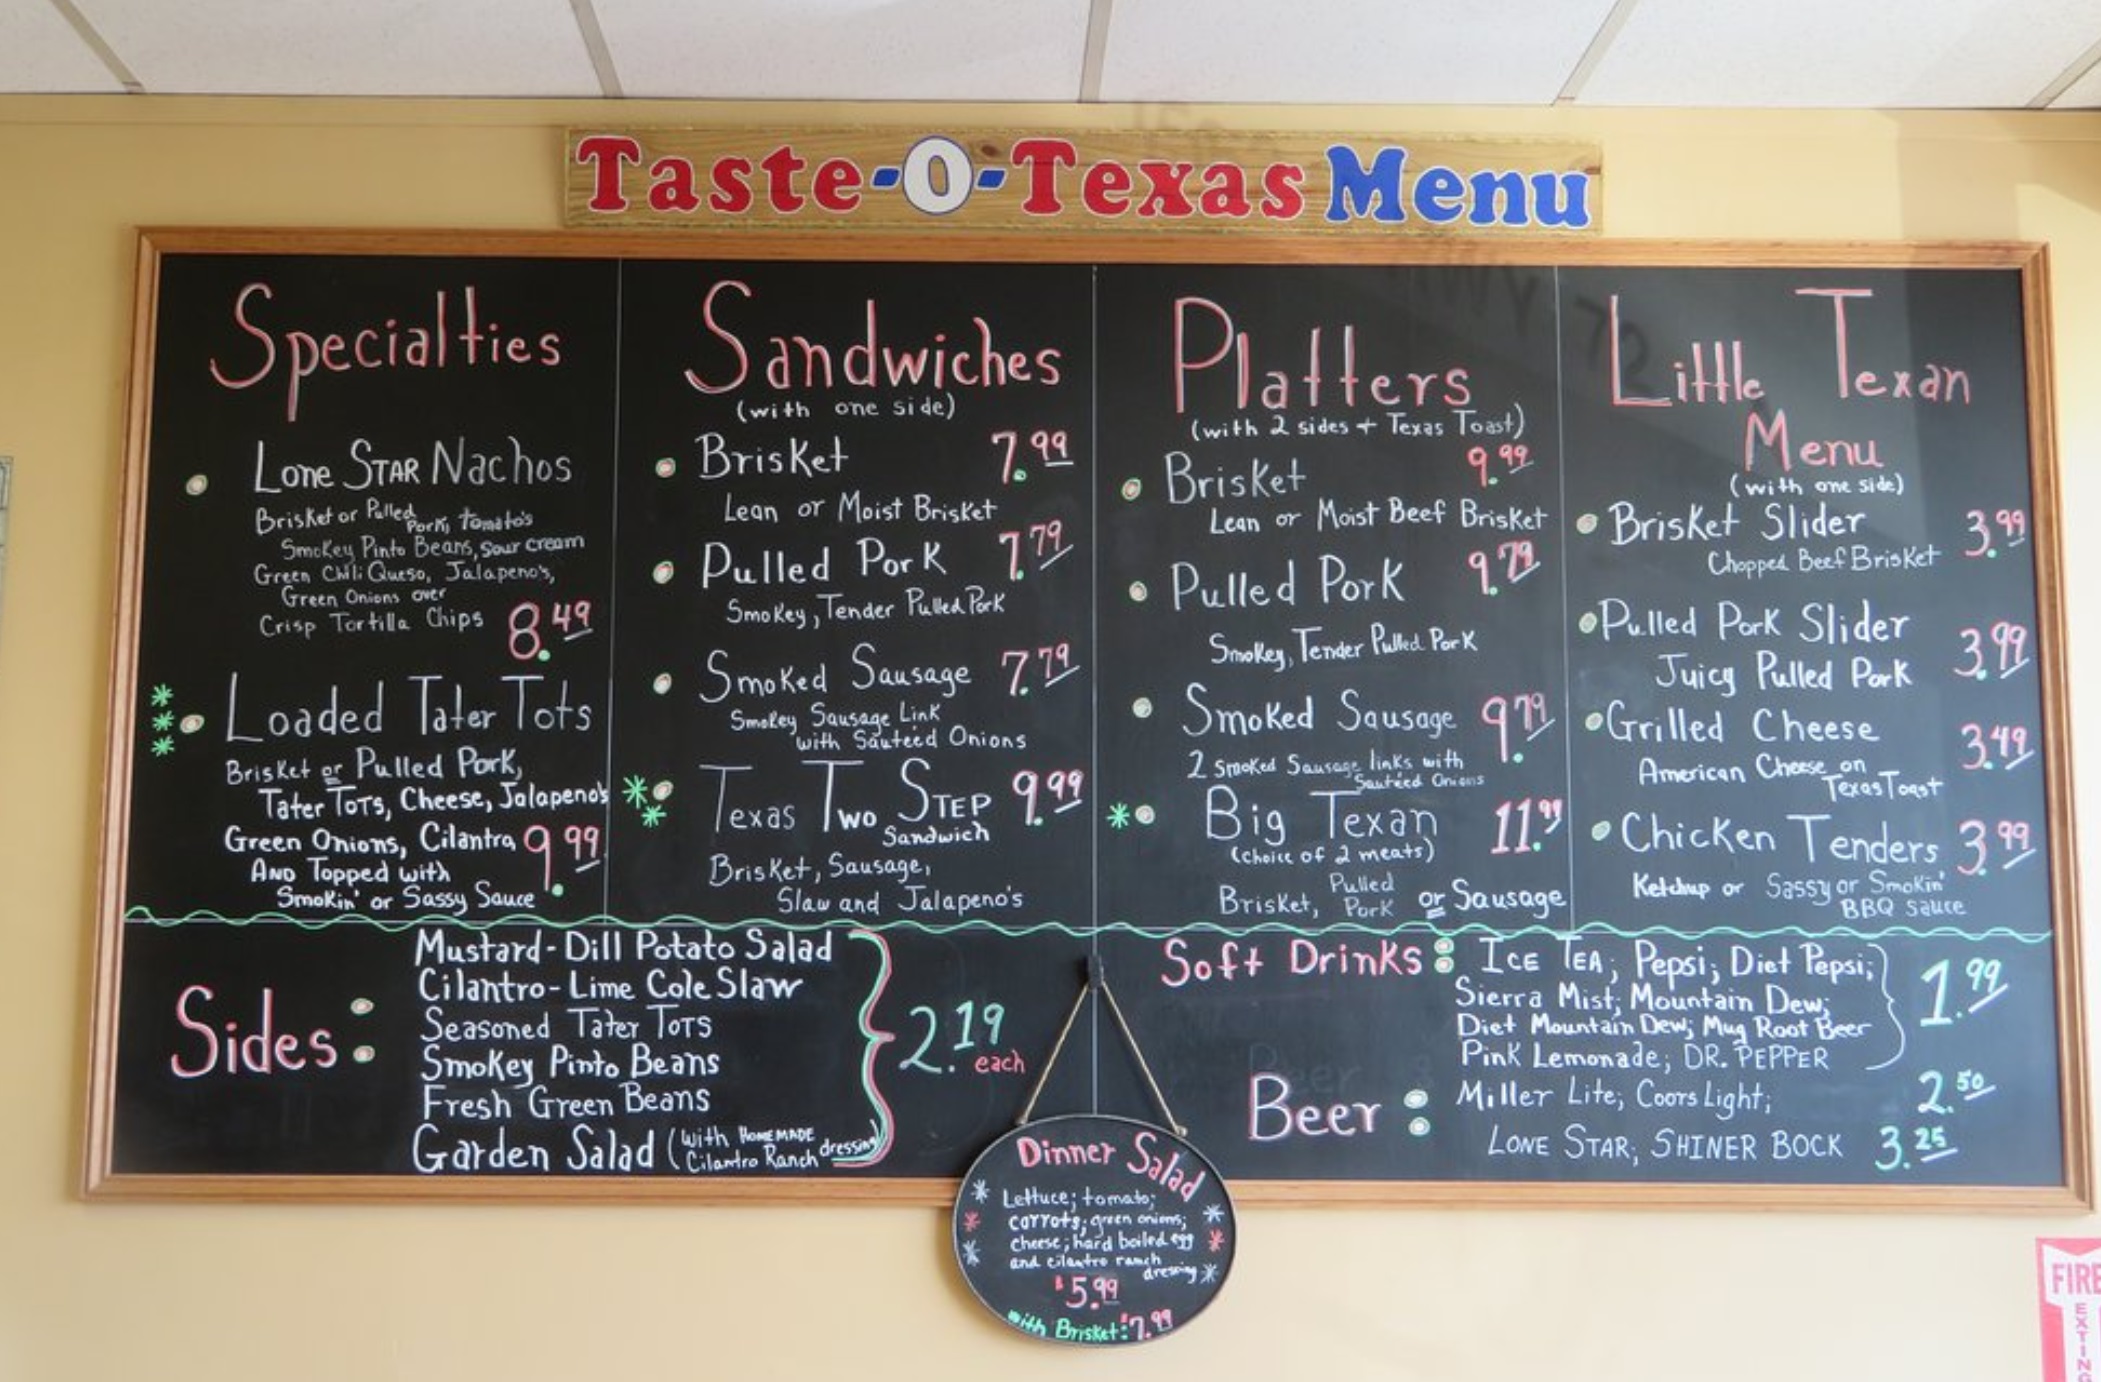 Taste-O-Texas Menu
Specialties
Lone STAR Nachos
Brisket or Pulled Pork, tomato's
Smokey Pinto Beans, sour cream
Green Chili Queso, Jalapeno's,
Green Onions over
Crisp Tortilla Chips 8.49
Loaded Tater Tots
Brisket or Pulled Pork,
Tater Tots, Cheese, Jalapeno's
Green Onions, Cilantro
And Topped with
Smokin' or Sassy Sauce
9.99
Sandwiches
(with one side)
Brisket 7.99
Lean or Moist Brisket
Pulled Pork 7.79
Smokey, Tender Pulled Pork
Smoked Sausage 7.79
Smokey Sausage Link
with Sauteéd Onions
Texas Two STEP 9.99
Sandwich
Brisket, Sausage,
Slaw and Jalapeno's
Platters
(with 2 sides + Texas Toast)
Brisket 9.99
Lean or Moist Beef Brisket
Pulled Pork 9.79
Smokey, Tender Pulled Pork
Smoked Sausage 9.79
2 smoked Sausage links with
Sauteéd Onions
Big Texan 11.99
(choice of 2 meats)
Brisket, Pulled Pork or Sausage
Little Texan
Menu
(with one side)
Brisket Slider 3.99
Chopped Beef Brisket
Pulled Pork Slider 3.99
Juicy Pulled Pork
Grilled Cheese 3.49
American Cheese on
Texas Toast
Chicken Tenders 3.99
Ketchup or Sassy or Smokin'
BBQ sauce
Sides:
Mustard-Dill Potato Salad
Cilantro-Lime Cole Slaw
Seasoned Tater Tots
Smokey Pinto Beans
Fresh Green Beans
Garden Salad (with HOMEMADE
Cilantro Ranch dressing)
2.19 each
Soft Drinks: ICE TEA; Pepsi; Diet Pepsi;
Sierra Mist; Mountain Dew;
Diet Mountain Dew; Mug Root Beer
Pink Lemonade; DR. PEPPER
1.99
Beer: Miller Lite; Coors Light; 2.50
LONE STAR; SHINER BOCK 3.25
Dinner Salad
Lettuce; tomato;
carrots; green onions;
cheese; hard boiled egg
and cilantro ranch
dressing
$5.99
with Brisket: $7.99
FIRE